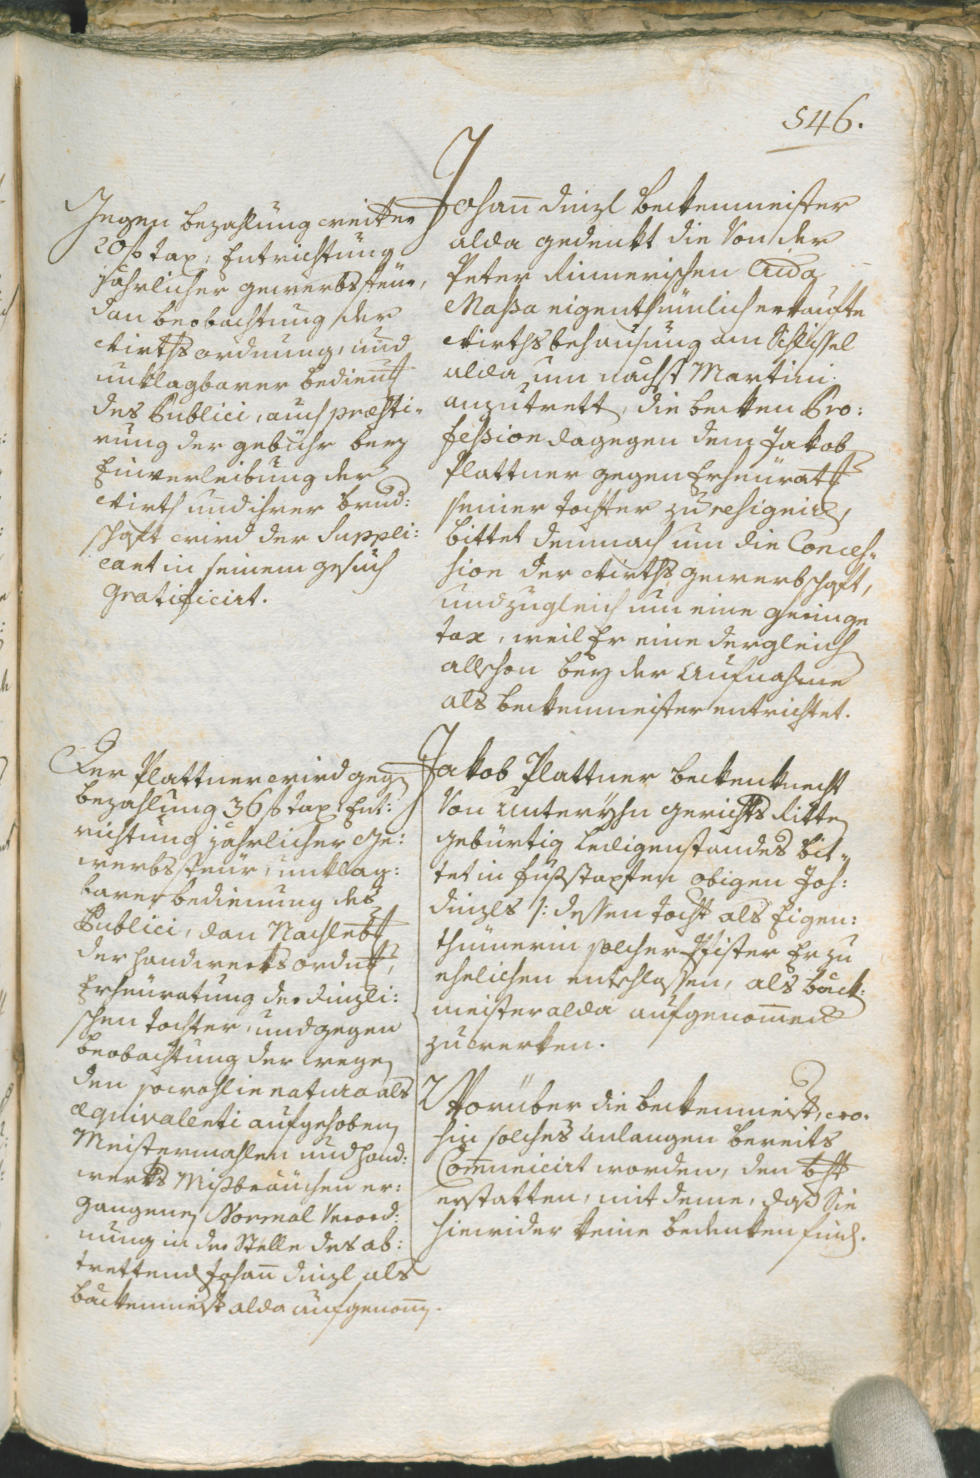 546.
Gegen bezahlung weitter
20 f tax, Entrichtung
jährlicher gewerbsteur,
dan beobachtung der
Wirthsordnung, und
unklagbarer bedienung
des Publici, auch præsti-
rung der gebühr bey
Einverleibung der
Wirth und ihrer brud:
schaft wird der Suppli:
cant in seinem gesuch
gratificirt.
Johann Dinzl beckenmeister
alda gedenkt die von der
Peter Rinnerischen Crida
Massa eigenthümlich erkaufte
Wirthsbehausung am Schlüssel
alda um nächst Martini
anzutretten, die becken Pro:
fession dagegen dem Jakob
Plattner gegen Erheürattung
seiner tochter zu resigniren,
bittet demnach um die Conces-
sion der Wirthsgewerbschaft,
und zugleich um eine geringe
tax, weil Er eine dergleichen
allschon bey der Aufnahme
als beckenmeister entrichtet.
Der Plattner wird gegen
bezahlung 36 f tax, Ent:
richtung jährlicher Ge:
werbsteur, unklag:
barer bedienung des
Publici, dan Nachlebung
der handwerksordnung,
Erheüratung der Dinzli:
schen tochter, und gegen
beobachtung der wegen
den sowohl in natura als
æquivalenti aufgehoben
Meistermahlen und hand:
werks Mißbräuchen er:
gangenen Normal Verord:
nung in der Stelle des ab:
trettend Johann Dinzl als
beckenmeister alda aufgenommen.
Jakob Plattner beckenknecht
von Unterrhn gerichts Ritten
gebürtig ledigenstandes bit-
tet in fußstapfen obigen Joh:
Dinzls /: dessen tochter als Eigen:
thümerin solcher Pfister Er zu
ehelichen entschlossen, als beck:
meister alda aufgenommen
zu werden.
Worüber die beckenmeister, wo:
hin solches Anlangen bereits
Communicirt worden, den bericht
erstatten, mit deme, daß Sie
hierwider keine bedenken finden.